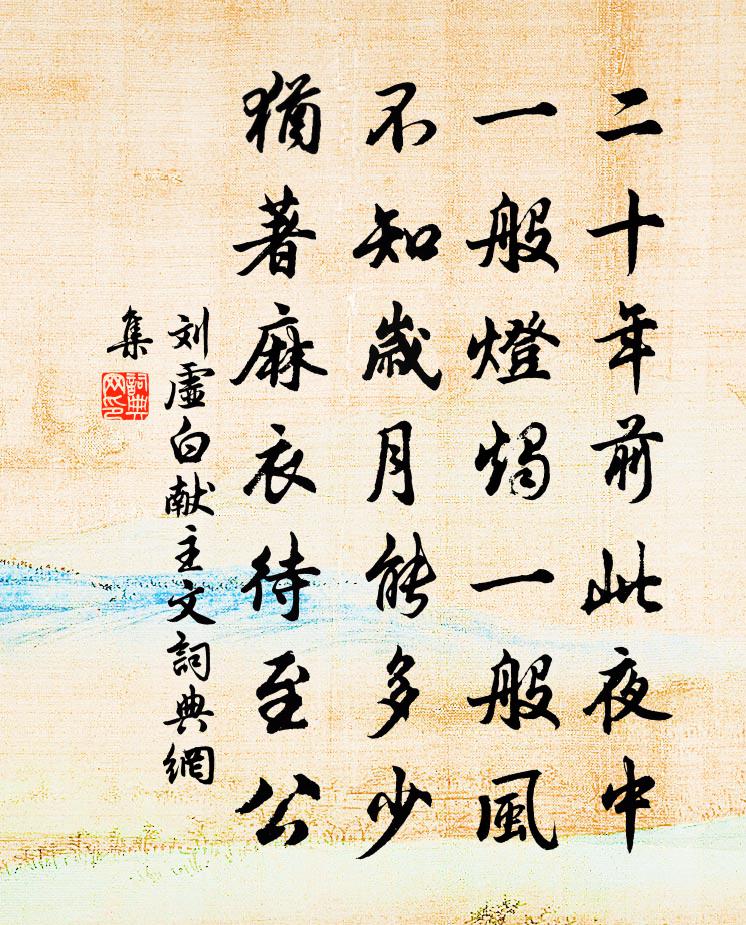 二十年前此夜中
一般燈燭一般風
不知歲月能多少
猶著麻衣待至公
刘虛白献主文詞典網
集
詞典
网印